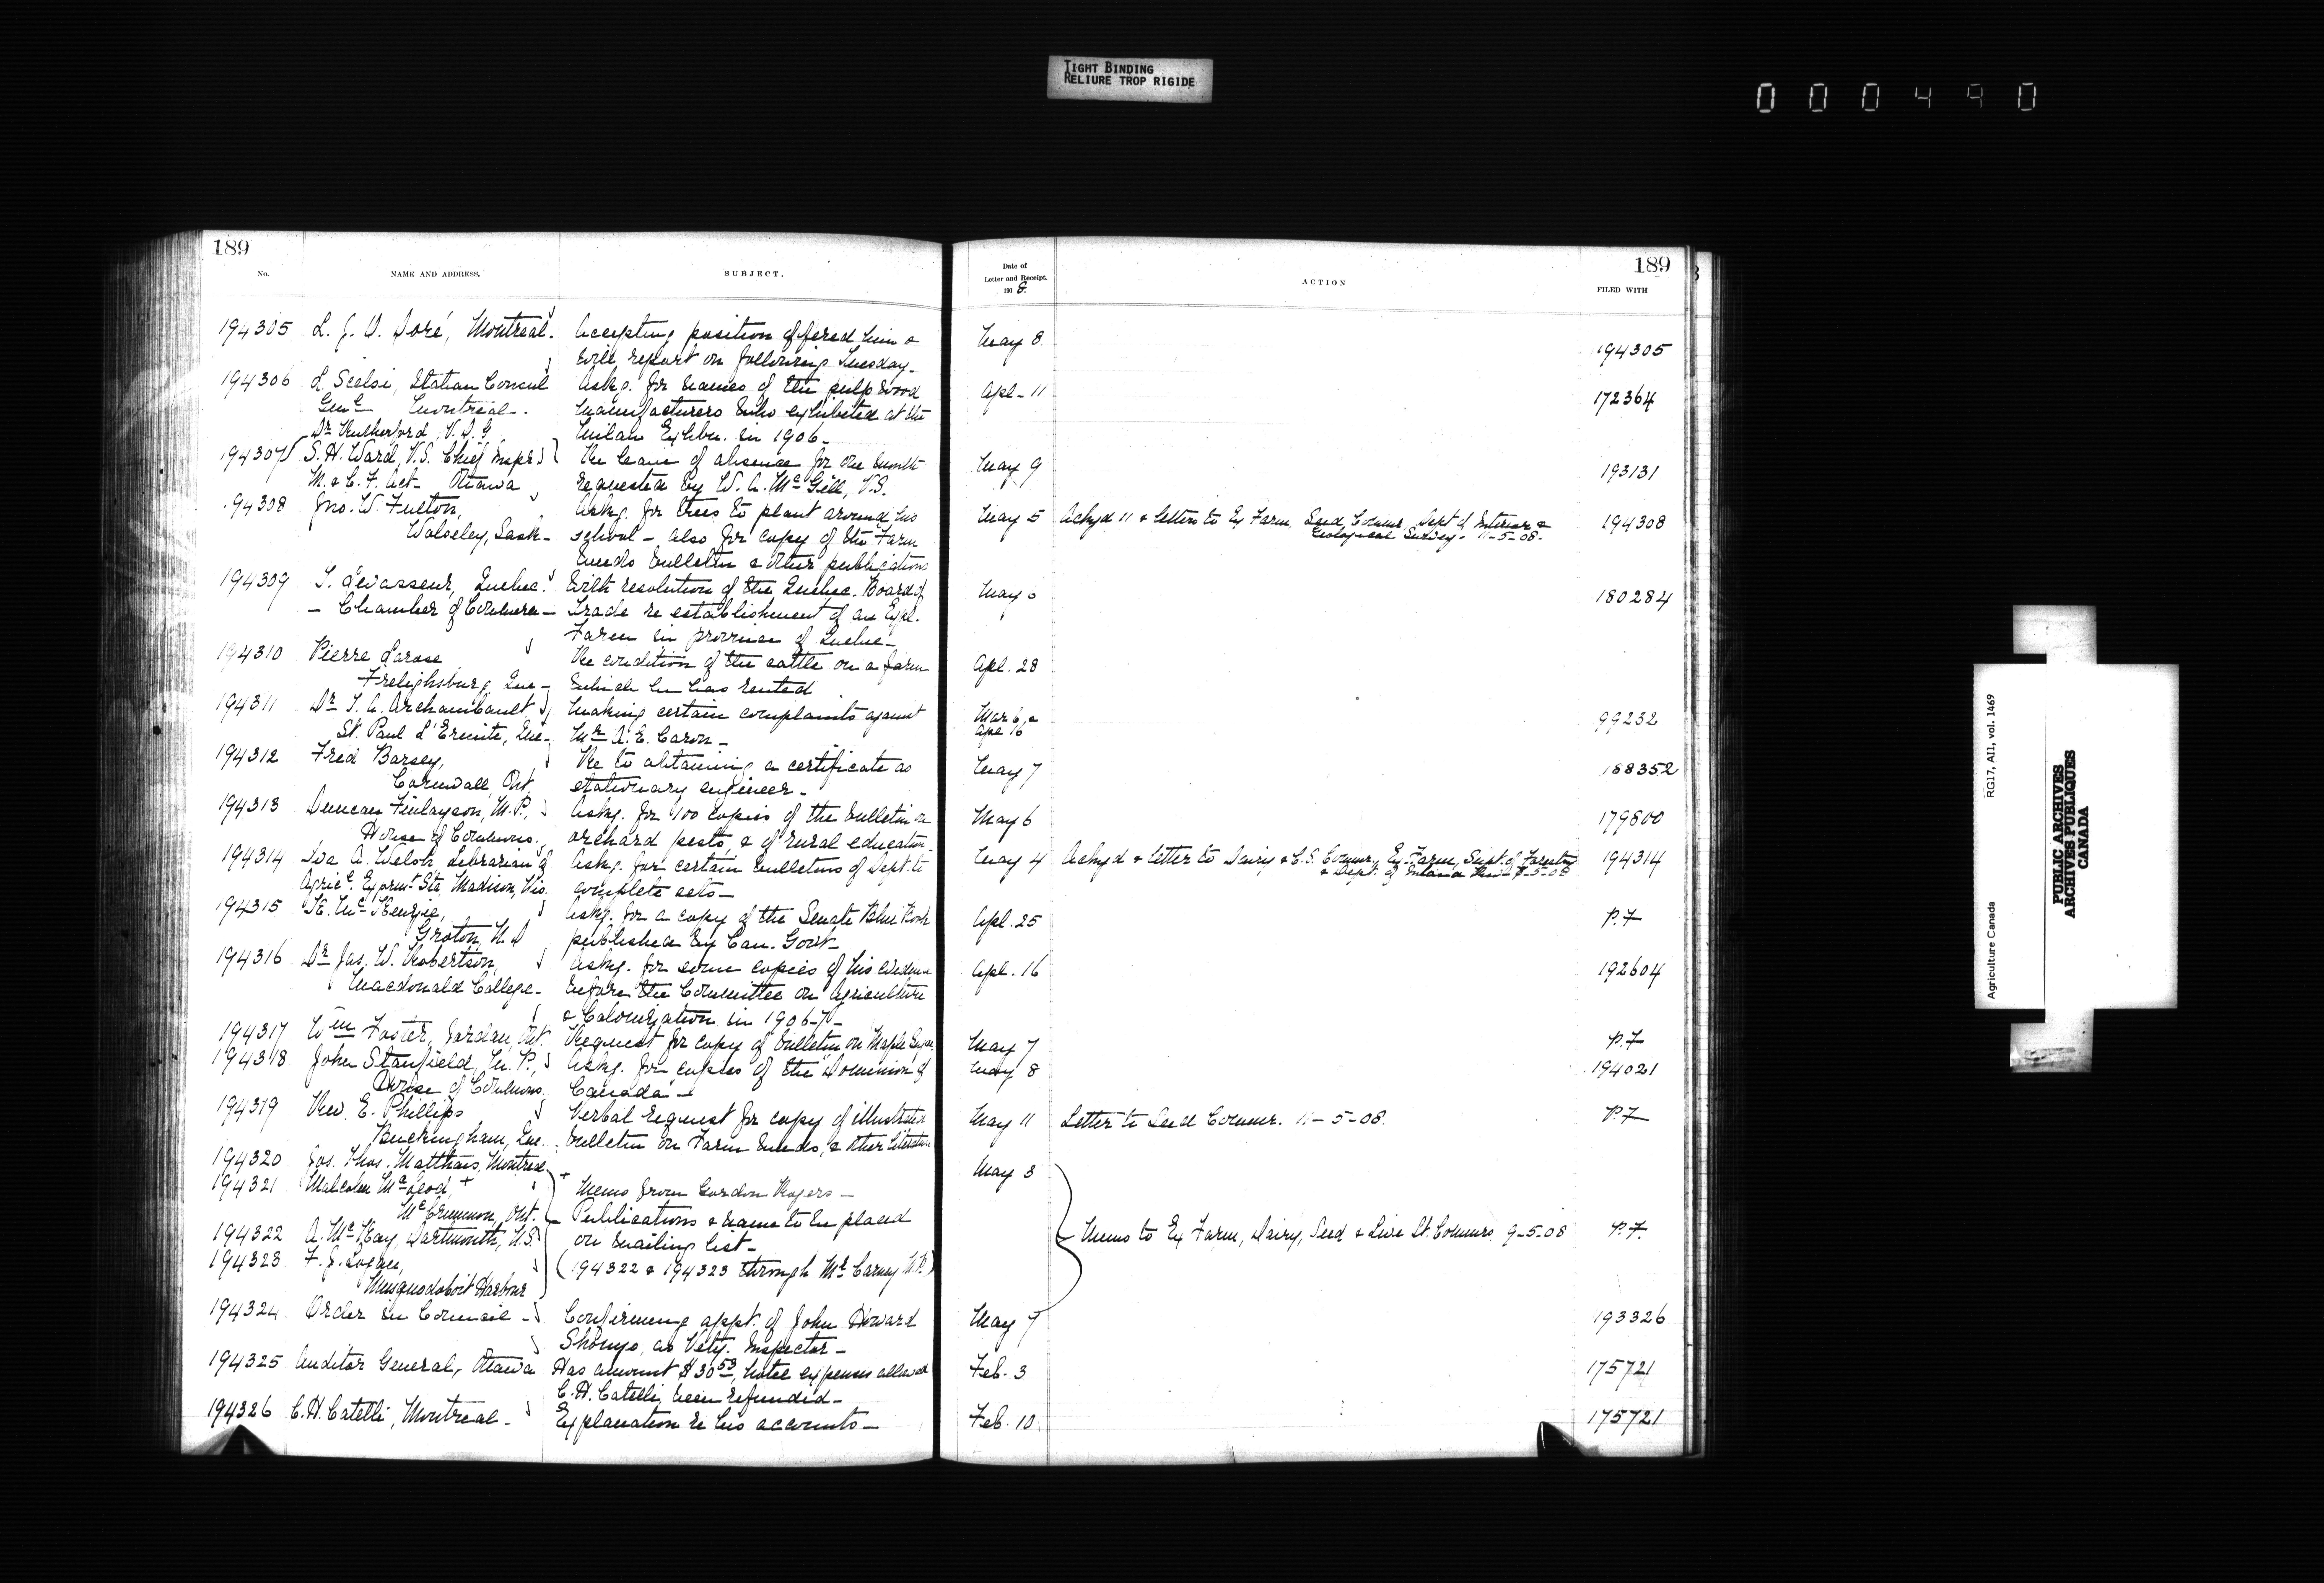 TIGHT BINDING
RELIURE TROP RIGIDE
000490
189
No.
NAME AND ADDRESS.
SUBJECT.
194305 L. J. O. Doré, Montreal. Accepting position offered him &
will report on following Tuesday.
194306 L. Scelsi, Italian Consul Askg. for names of the pulp wood
Genl Montreal. manufacturers who exhibited at the
Milan Exhbn. in 1906.
Dr Rutherford, V.D.G.
194307 S. H. Ward, V.S. Chief Inspr Re leave of absence for one month
M. & C. F. Act Ottawa requested by W. A. McGill, V.S.
94308 Jno. W. Fulton, Askg. for trees to plant around his
Wolseley, Sask- school - also for copy of the Farm
Weeds bulletin & other publications
194309 T. Levasseur, Quebec. With resolution of the Quebec Board of
- Chamber of Commerce - Trade re establishment of an Expl.
Farm in province of Quebec-
194310 Pierre Larose Re condition of the cattle on a farm
Frelighsburg, Que- which he has rented
194311 Dr T. A. Archambault Making certain complaints against
St. Paul L'Ermite, Que- Mr A. E. Caron-
194312 Fred Barsey, Re to obtaining a certificate as
Cornwall, Ont. stationary engineer-
194313 Duncan Finlayson, M.P., Askg. for 100 copies of the bulletin on
House of Commons. orchard pests, & of rural education.
194314 Iva A. Welsh Librarian of Askg. for certain bulletins of Dept. to
Agricl. Exprmt Sta, Madison, Wis. complete sets-
194315 K. McKenzie, Askg. for a copy of the Senate Blue Book
Groton, N.D published by Can. Govt-
194316 Dr Jas. W. Robertson, Askg. for some copies of his evidence
Macdonald College- before the Committee on Agriculture
& Colonization in 1906-7-
194317 Wm Foster, Jordan, Ont. Request for copy of bulletin on Maple Sugar
194318 John Stanfield, M.P., Askg. for copies of the "Dominion of
House of Commons, Canada"-
194319 Rev. E. Phillips Verbal request for copy of illustrated
Buckingham, Que. bulletin on Farm weeds, & other literature
194320 Jos. Thos. Matthais, Montreal
194321 Malcolm McLeod, + + Memo from Gordon Rogers-
McCrimmon, Ont. Publications & name to be placed
194322 A. McKay, Dartmouth, N.S. on mailing list-
194323 F. J. Logan, (194322 & 194323 through Mr Carney M.P.)
Musquodoboit Harbour
194324 Order in Council- Confirming appt. of John Howard
Shonyo, as Vety. Inspector-
194325 Auditor General, Ottawa Has amount $30.53, hotel expenses allowed
C. H. Catelli, been refunded-
194326 C. H. Catelli, Montreal- Explanation re his accounts-
Date of
Letter and Receipt.
190 8.
ACTION
189
FILED WITH
May 8 194305
Apl-11 172364
May 9 193131
May 5 Ackgd 11 & letters to Ex Farm, Seed Commr, Dept of Interior & 194308
Geological Survey. 11-5-08.
May 180284
Apl. 28
Mar 6 & 99232
Apl 16
May 7 188352
May 6 179800
May 4 Ackgd & letter to Dairy & C.S. Commr, Ex Farm, Supt. of Forestry 194314
& Dept. of Interior
Apl. 25 P.7
Apl. 16 192604
May 7 P.7
May 8 194021
May 11 Letter to Seed Commr. 11-5-08. P.7
May 8
Memo to Ex Farm, Dairy, Seed & Live St. Commrs 9-5-08 P.7.
May 7 193326
Feb. 3 175721
Feb. 10 175721
Agriculture Canada
RG17, AII, vol. 1469
PUBLIC ARCHIVES
ARCHIVES PUBLIQUES
CANADA